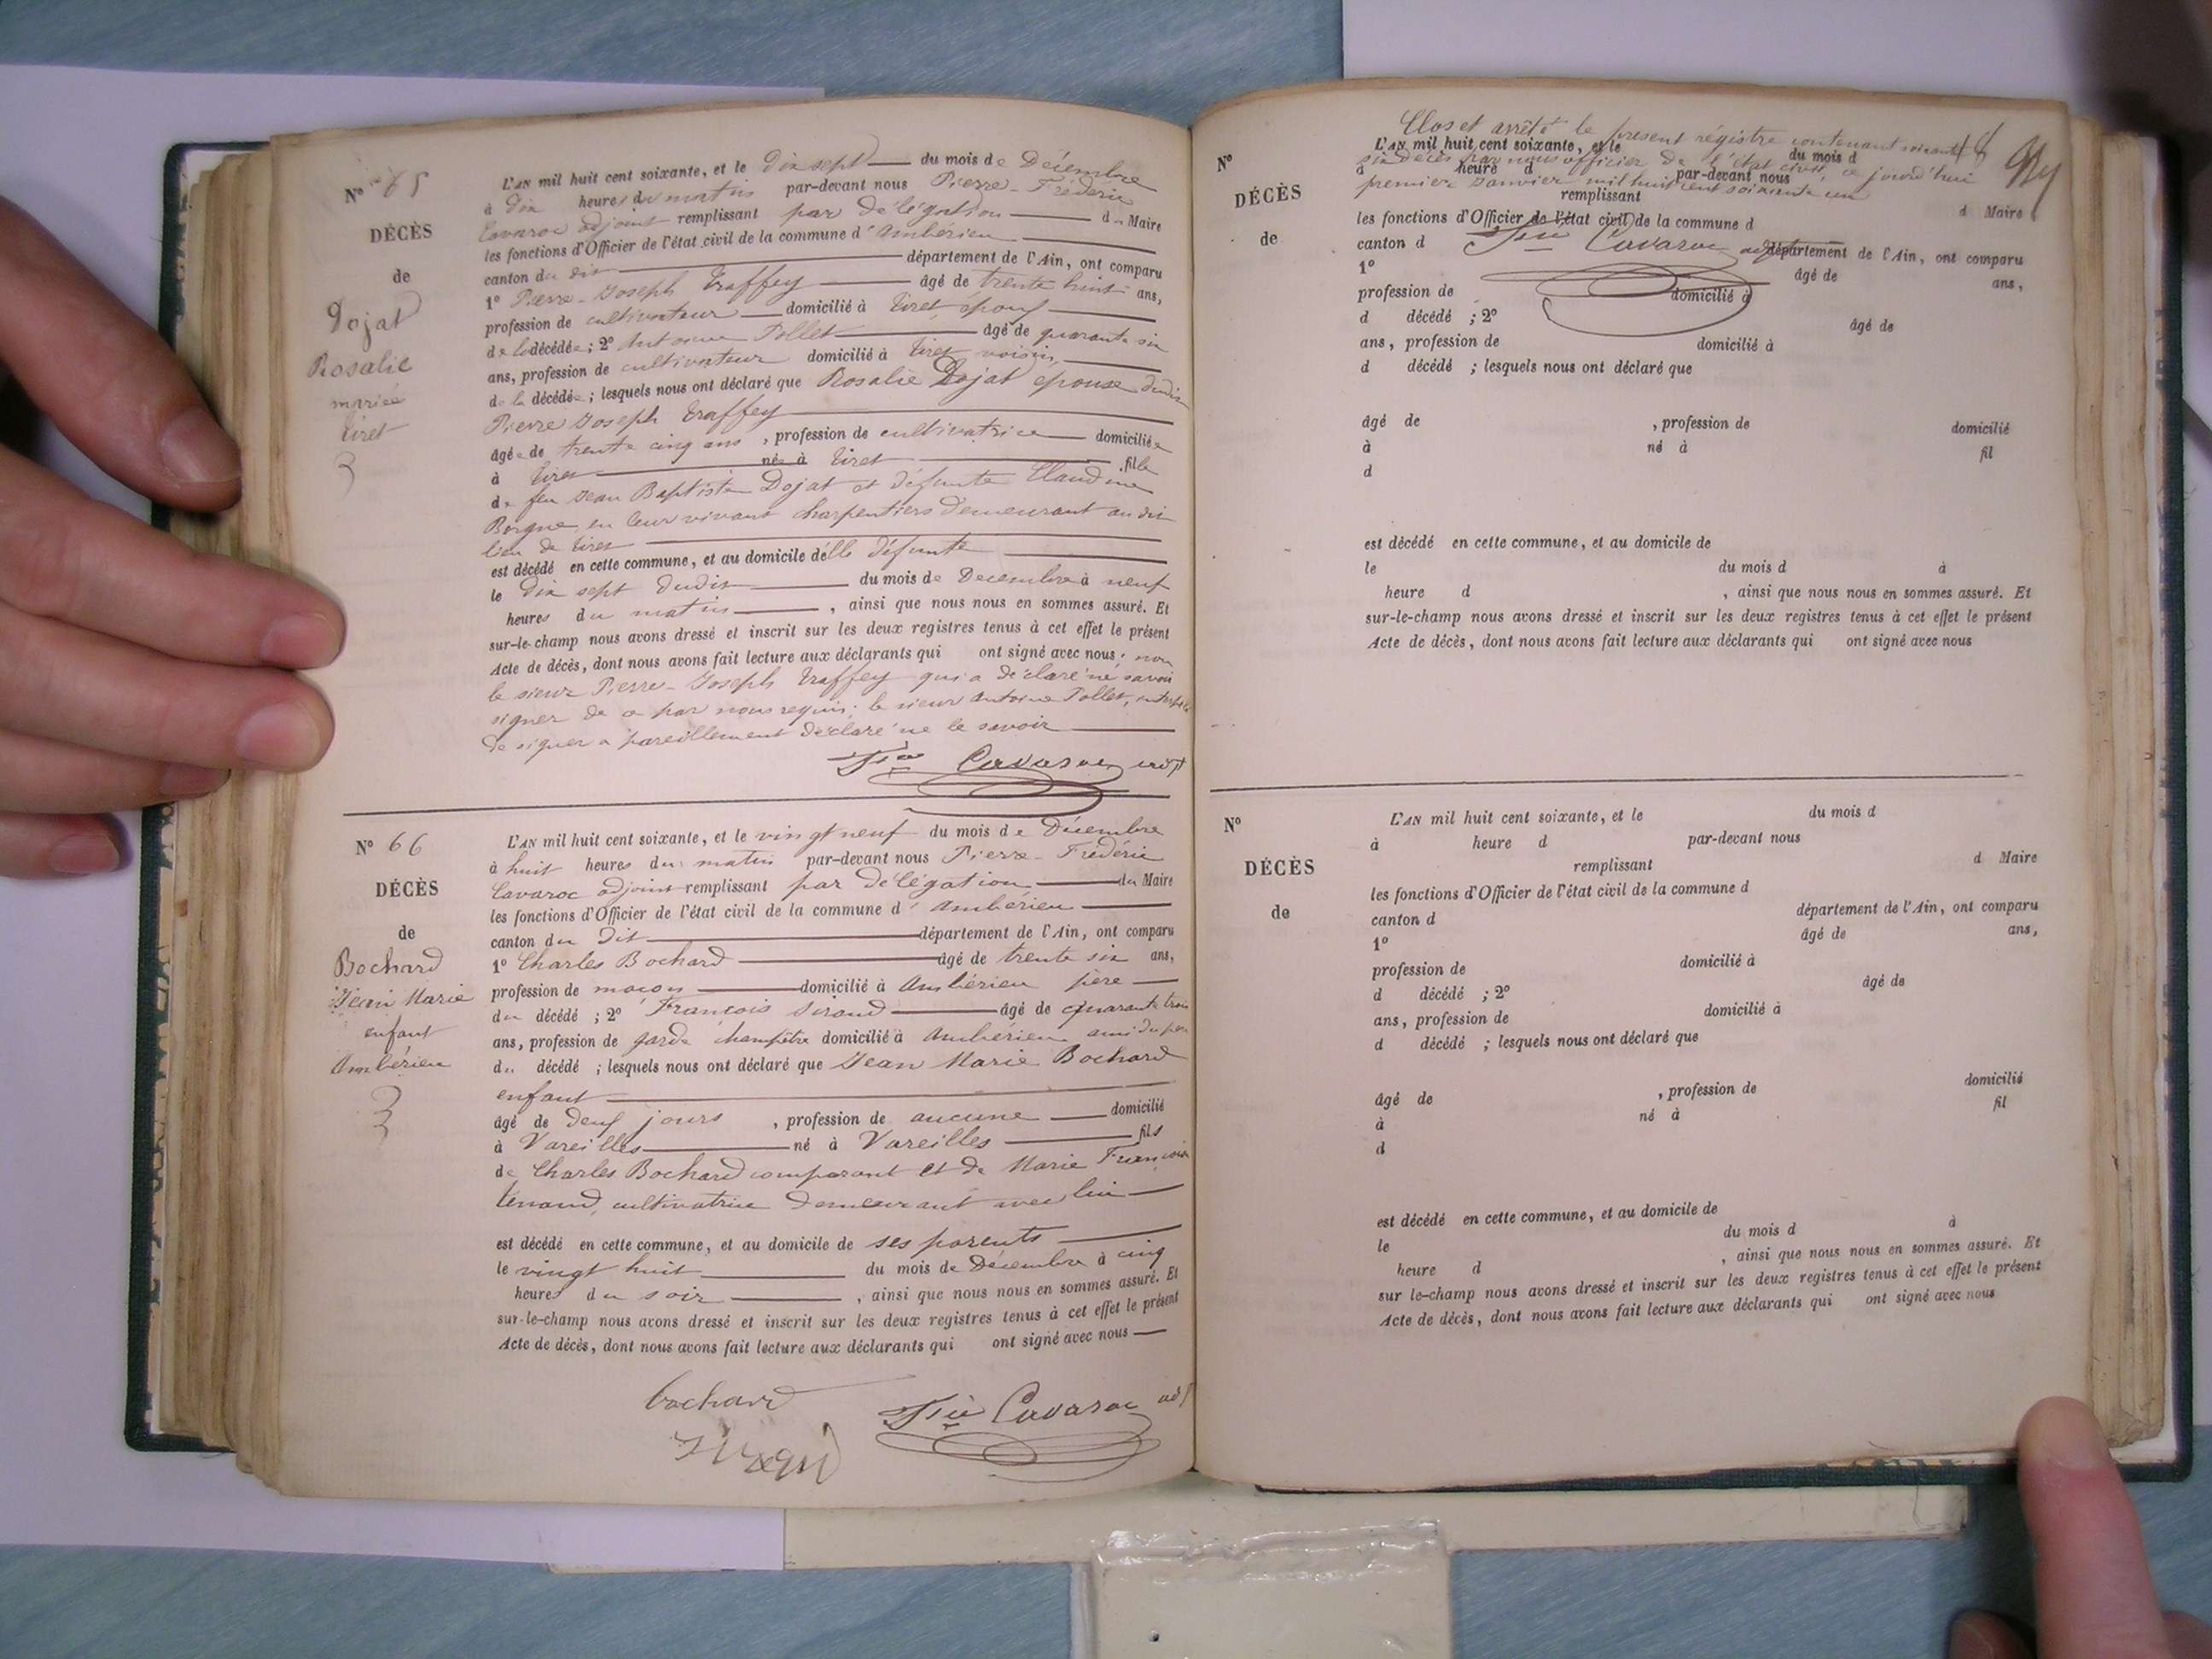 N° 65
DÉCÈS
de
Dojat
Rosalie
mariée
tiret
3
L'AN mil huit cent soixante, et le dix sept du mois de Décembre
à dix heures du matin par-devant nous Pierre-Fréderic
Cavaroc adjoint remplissant par délégation du Maire
les fonctions d'Officier de l'état civil de la commune d'Ambérieu
canton du dit département de l'Ain, ont comparu
1° Pierre-Joseph Traffey âgé de trente huit ans,
profession de cultivateur domicilié à tiret, époux
de la décédée ; 2° Antoine Pollet âgé de quarante six
ans, profession de cultivateur domicilié à tiret, voisin
de la décédée ; lesquels nous ont déclaré que Rosalie Dojat épouse dudit
Pierre Joseph Traffey
âgée de trente cinq ans , profession de cultivatrice domiciliée
à tiret née à tiret fille
de feu Jean Baptiste Dojat et défunte Claudine
Borgne en leur vivant charpentiers demeurant au dit
lieu de tiret
est décédé en cette commune, et au domicile de lle défunte
le dix sept dudit du mois de Decembre à neuf
heures du matin , ainsi que nous nous en sommes assuré. Et
sur-le-champ nous avons dressé et inscrit sur les deux registres tenus à cet effet le présent
Acte de décès, dont nous avons fait lecture aux déclarants qui ont signé avec nous ; non
le sieur Pierre-Joseph Traffey qui a déclaré ne savoir
signer de ce par nous requis ; le sieur Antoine Pollet,
de signer a pareillement déclaré ne le savoir
Cavaroc adjt
N° 66
DÉCÈS
de
Bochard
Jean Marie
enfant
Ambérieu
3
L'AN mil huit cent soixante, et le vingt neuf du mois de Décembre
à huit heures du matin par-devant nous Pierre-Fréderic
Cavaroc adjoint remplissant par délégation du Maire
les fonctions d'Officier de l'état civil de la commune d'Ambérieu
canton du dit département de l'Ain, ont comparu
1° Charles Bochard âgé de trente six ans,
profession de maçon domicilié à Ambérieu père
du décédé ; 2° François Siraud âgé de quarante trois
ans, profession de garde champêtre domicilié à Ambérieu ami du père
du décédé ; lesquels nous ont déclaré que Jean Marie Bochard
enfant
âgé de deux jours , profession de aucune domicilié
à Vareilles né à Vareilles fils
de Charles Bochard comparant et de Marie Françoise
tenand, cultivatrice demeurant avec lui
est décédé en cette commune, et au domicile de ses parents
le vingt huit du mois de Décembre à cinq
heures du soir , ainsi que nous nous en sommes assuré. Et
sur-le-champ nous avons dressé et inscrit sur les deux registres tenus à cet effet le présent
Acte de décès, dont nous avons fait lecture aux déclarants qui ont signé avec nous
bochard
Cavaroc adj
Clos et arrêté le present régistre contenant soixante
six décès par nous officier de l'état civil, ce jourd'hui
premier Janvier mil huit cent soixante un
Cavaroc adjt
N°
DÉCÈS
de
L'AN mil huit cent soixante, et le du mois d
à heure d par-devant nous
remplissant d Maire
les fonctions d'Officier de l'état civil de la commune d
canton d département de l'Ain, ont comparu
1° âgé de ans,
profession de domicilié à
d décédé ; 2° âgé de
ans, profession de domicilié à
d décédé ; lesquels nous ont déclaré que
âgé de , profession de domicilié
à né à fil
d
est décédé en cette commune, et au domicile de
le du mois d à
heure d , ainsi que nous nous en sommes assuré. Et
sur-le-champ nous avons dressé et inscrit sur les deux registres tenus à cet effet le présent
Acte de décès, dont nous avons fait lecture aux déclarants qui ont signé avec nous
N°
DÉCÈS
de
L'AN mil huit cent soixante, et le du mois d
à heure d par-devant nous
remplissant d Maire
les fonctions d'Officier de l'état civil de la commune d
canton d département de l'Ain, ont comparu
1° âgé de ans,
profession de domicilié à
d décédé ; 2° âgé de
ans, profession de domicilié à
d décédé ; lesquels nous ont déclaré que
âgé de , profession de domicilié
à né à fil
d
est décédé en cette commune, et au domicile de
le du mois d à
heure d , ainsi que nous nous en sommes assuré. Et
sur le-champ nous avons dressé et inscrit sur les deux registres tenus à cet effet le présent
Acte de décès, dont nous avons fait lecture aux déclarants qui ont signé avec nous